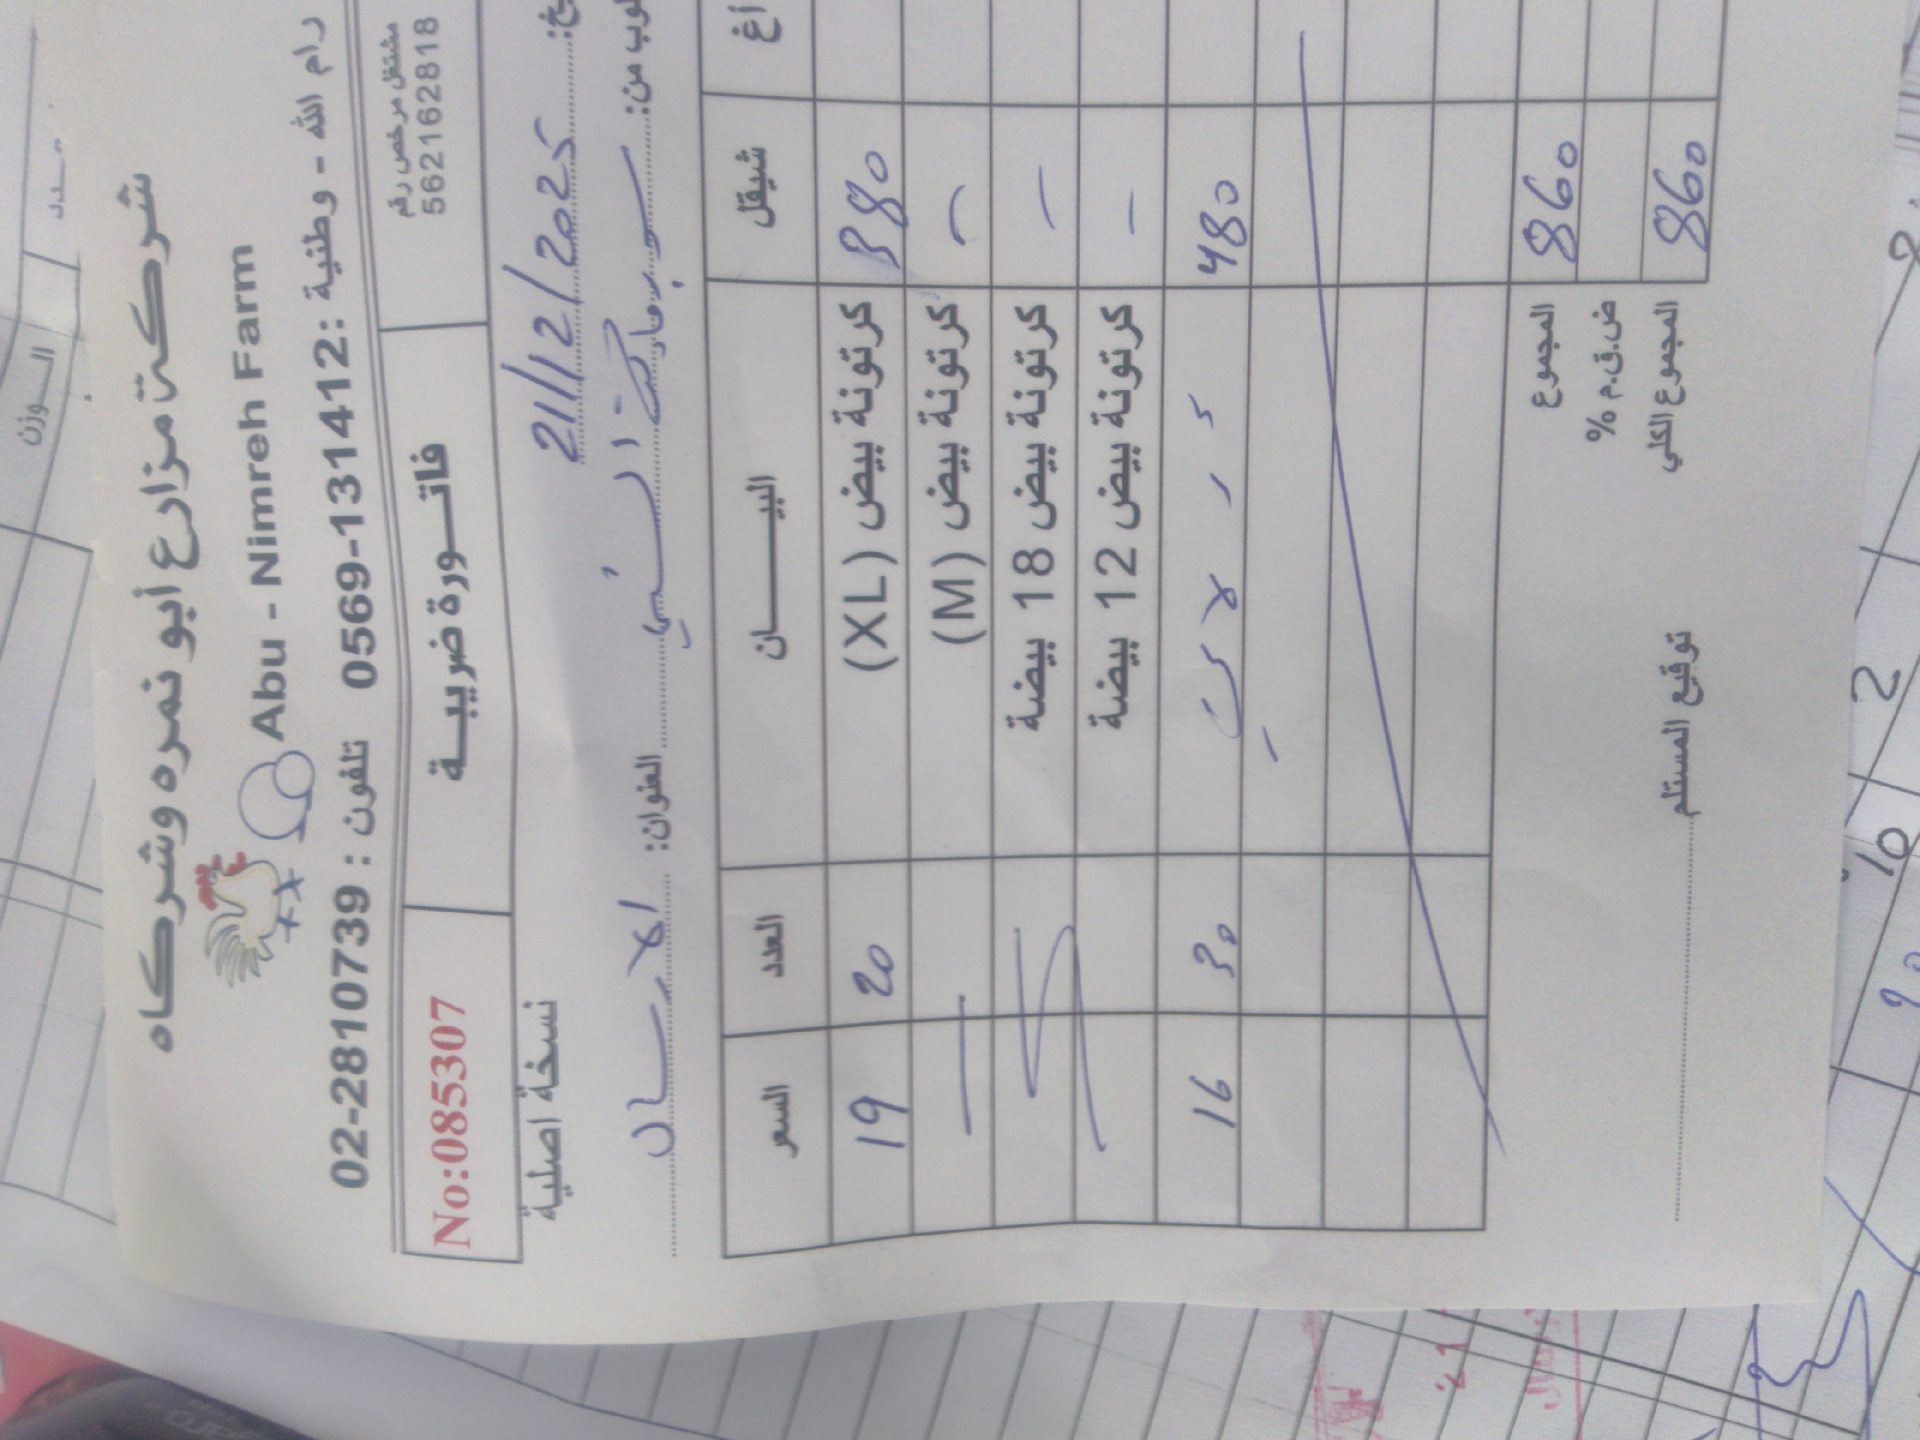 شركة مزارع أبو نمره وشركاه
Abu - Nimreh Farm
رام الله - وطنية : 0569-131412 تلفون : 02-2810739
مشتغل مرخص رقم
562162818
فاتـــورة ضريبيـــة
No:085307
21/12/2025
نسخة اصلية
سوبرماركت
العنوان: الارسال
أغ شيقل البيـــــــان العدد السعر
380 كرتونة بيض (XL) 20 19
- كرتونة بيض (M) -
- كرتونة بيض 18 بيضة
- كرتونة بيض 12 بيضة
480 30 16
المجموع 860
ض.ق.م %
المجموع الكلي 860
توقيع المستلم
الـــوزن